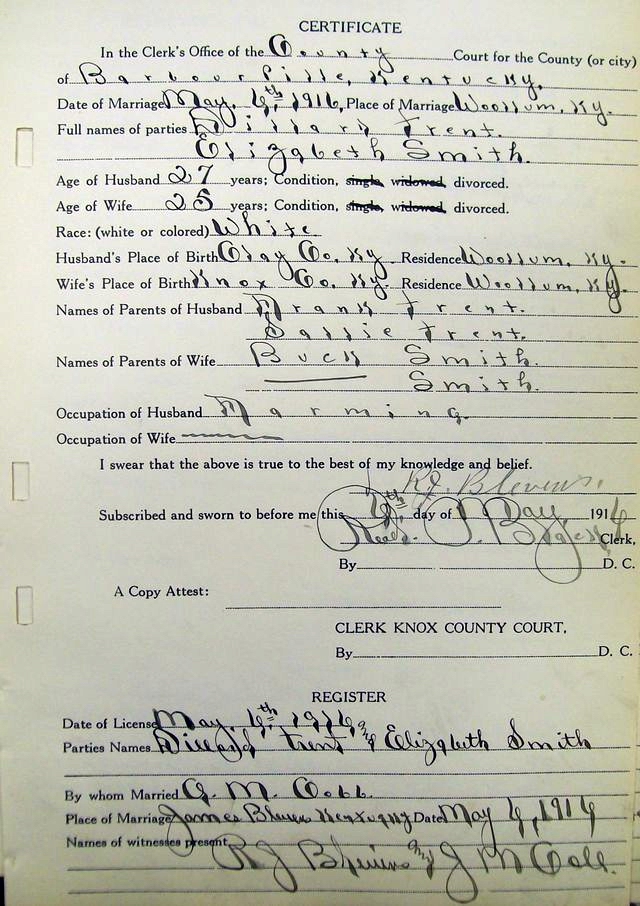 CERTIFICATE
In the Clerk's Office of the County Court for the County (or city)
of Barbourville, Kentucky.
Date of Marriage May, 4th, 1916, Place of Marriage Woollum, Ky.
Full names of parties Dillard Trent.
Elizabeth Smith.
Age of Husband 27 years; Condition, single, widowed, divorced.
Age of Wife 25 years; Condition, single, widowed, divorced.
Race: (white or colored) White
Husband's Place of Birth Clay Co. Ky Residence Woollum, Ky.
Wife's Place of Birth Knox Co. Ky. Residence Woollum, Ky.
Names of Parents of Husband Frank Trent.
Sallie Trent.
Names of Parents of Wife Buck Smith.
Smith.
Occupation of Husband Farming.
Occupation of Wife
I swear that the above is true to the best of my knowledge and belief.
R.J. Blevins.
Subscribed and sworn to before me this 4th. day of May 1916
Read. P. Clerk,
By D. C.
A Copy Attest:
CLERK KNOX COUNTY COURT,
By D. C.
REGISTER
Date of License May. 4th 1916
Parties Names Dillard Trent and Elizabeth Smith
By whom Married G. M. Cobb.
Place of Marriage James Blevins Kentucky Date May 4, 1916
Names of witnesses present R J Blevins and J M